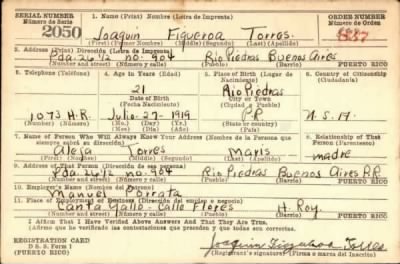 SERIAL NUMBER
Número de Serie
2050
1. Name (Print) Nombre (Letra de Imprenta)
Joaquin Figueroa Torres.
(First) (Primer Nombre) (Middle) (Segundo) (Last) (Apellido)
ORDER NUMBER
Número de Orden
3. Address (Print) Dirección (Letra de Imprenta)
Pda. 26 1/2 no. 904 Rio Piedras Buenos Aires
(Number and street) Número y calle) (Pueblo) (Barrio) PUERTO RICO
3. Telephone (Teléfono)
1073 H.R.
4. Age in Years (Edad)
21
Date of Birth
(Fecha Nacimiento)
Julio - 27 - 1919
(Mo.) (Day) (Yr.)
(Mes) (Día) (Año)
5. Place of Birth (Lugar de Nacimiento)
Rio Piedras
City or Town
(Ciudad o Pueblo)
P.R.
(State or country)
6. Country of Citizenship
(Ciudadanía)
U.S.A.
7. Name of Person Who Will Always Know Your Address (Nombre de la Persona que siempre sabrá su dirección)
Torres Maris
(First) (Nombre) (Middle) (Segundo) (Last) (Apellido)
8. Relationship of That Person (Parentesco)
madre
9. Address of That Person (Dirección de esa persona)
Pda. 26 1/2 no. 904 Rio Piedras Buenos Aires P.R.
(Number and street) (Número y calle) (Pueblo) (Barrio) PUERTO RICO
10. Employer's Name (Nombre del Patrono)
Manuel Porrata
11. Place of Employment or Business (Dirección del empleo o negocio)
Canta Gallo - Calle Flores H. Roy.
(Number and street) (Número y calle) (Pueblo) (Barrio) PUERTO RICO
I Affirm That I Have Verified Above Answers And That They Are True.
(Afirmo que he verificado las contestaciones que preceden y que todas son correctas).
REGISTRATION CARD
D. S. S. Form 1
(PUERTO RICO)
Joaquin Figueroa Torres
(Registrant's signature) (Firma o marca del Inscrito)